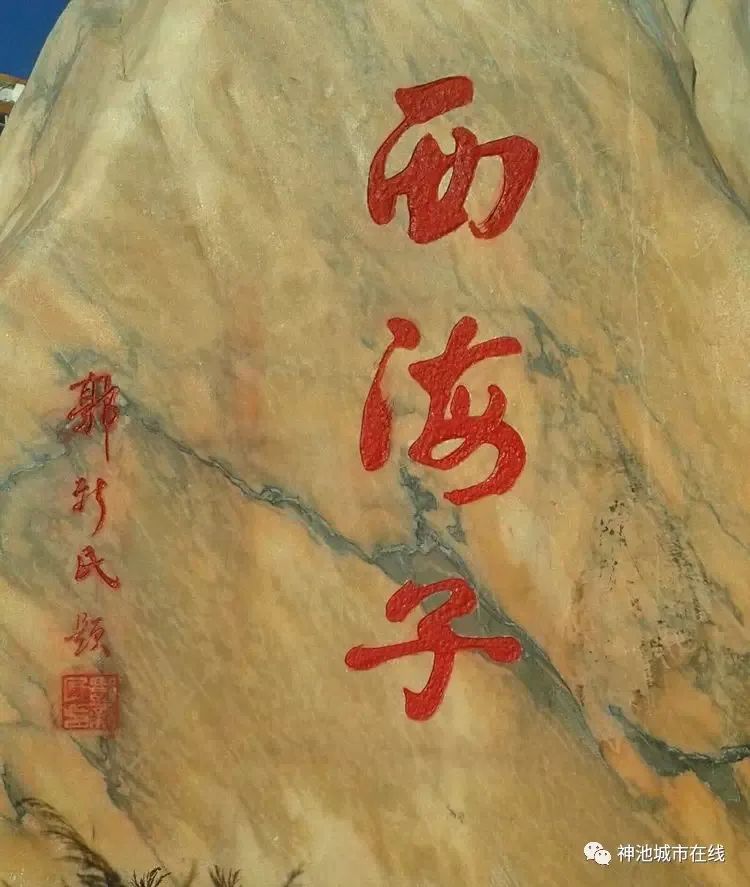 西海子
郭新民题
神池城市在线